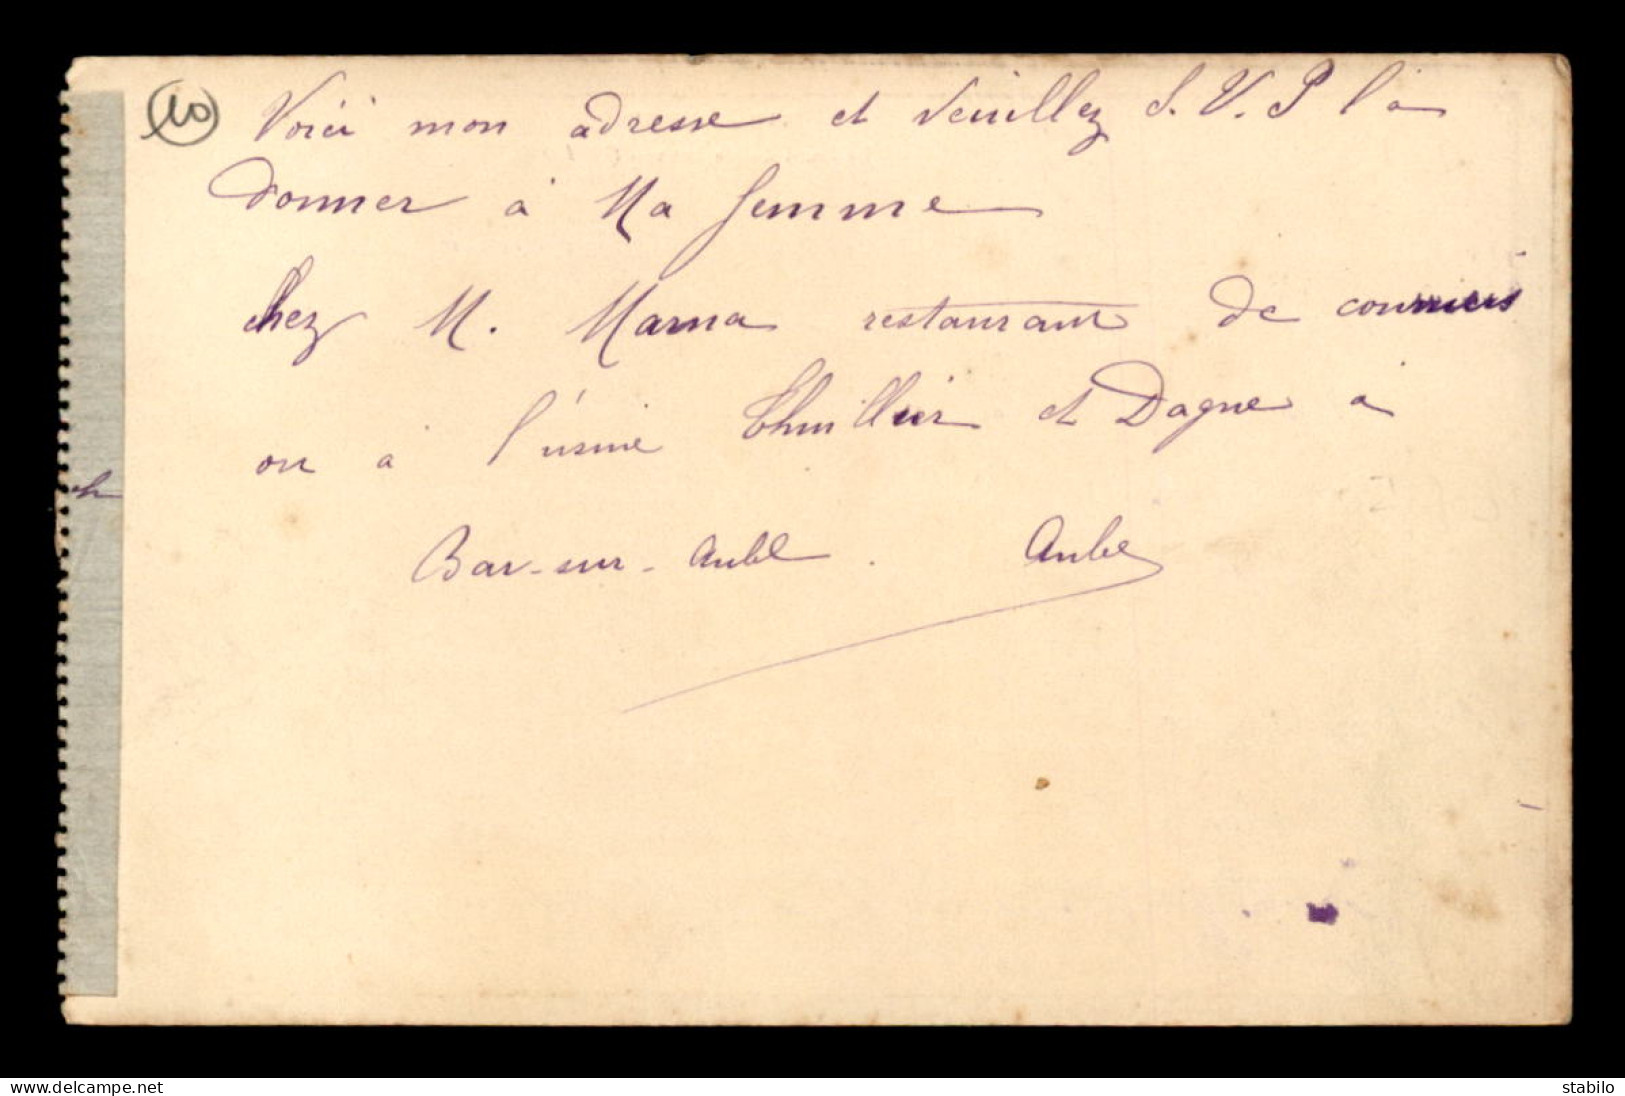 10
Voici mon adresse et veuillez S. V. P l'a
donner à Ma femme
chez M. Marna restaurant de
ou à l'usine Thuillier et Dagne à
Bar-sur-Aube. Aube
delcampe.net
stabilo